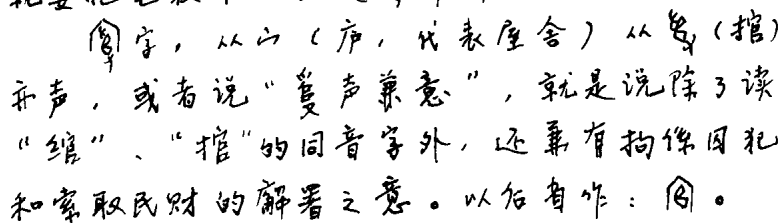 字，从宀（庐，代表屋舍）从（捾）
亦声，或者说“声兼意”，就是说除了读
“绾”、“捾”的同音字外，还兼有拘係囚犯
和索取民财的廨署之意。以后省作：。